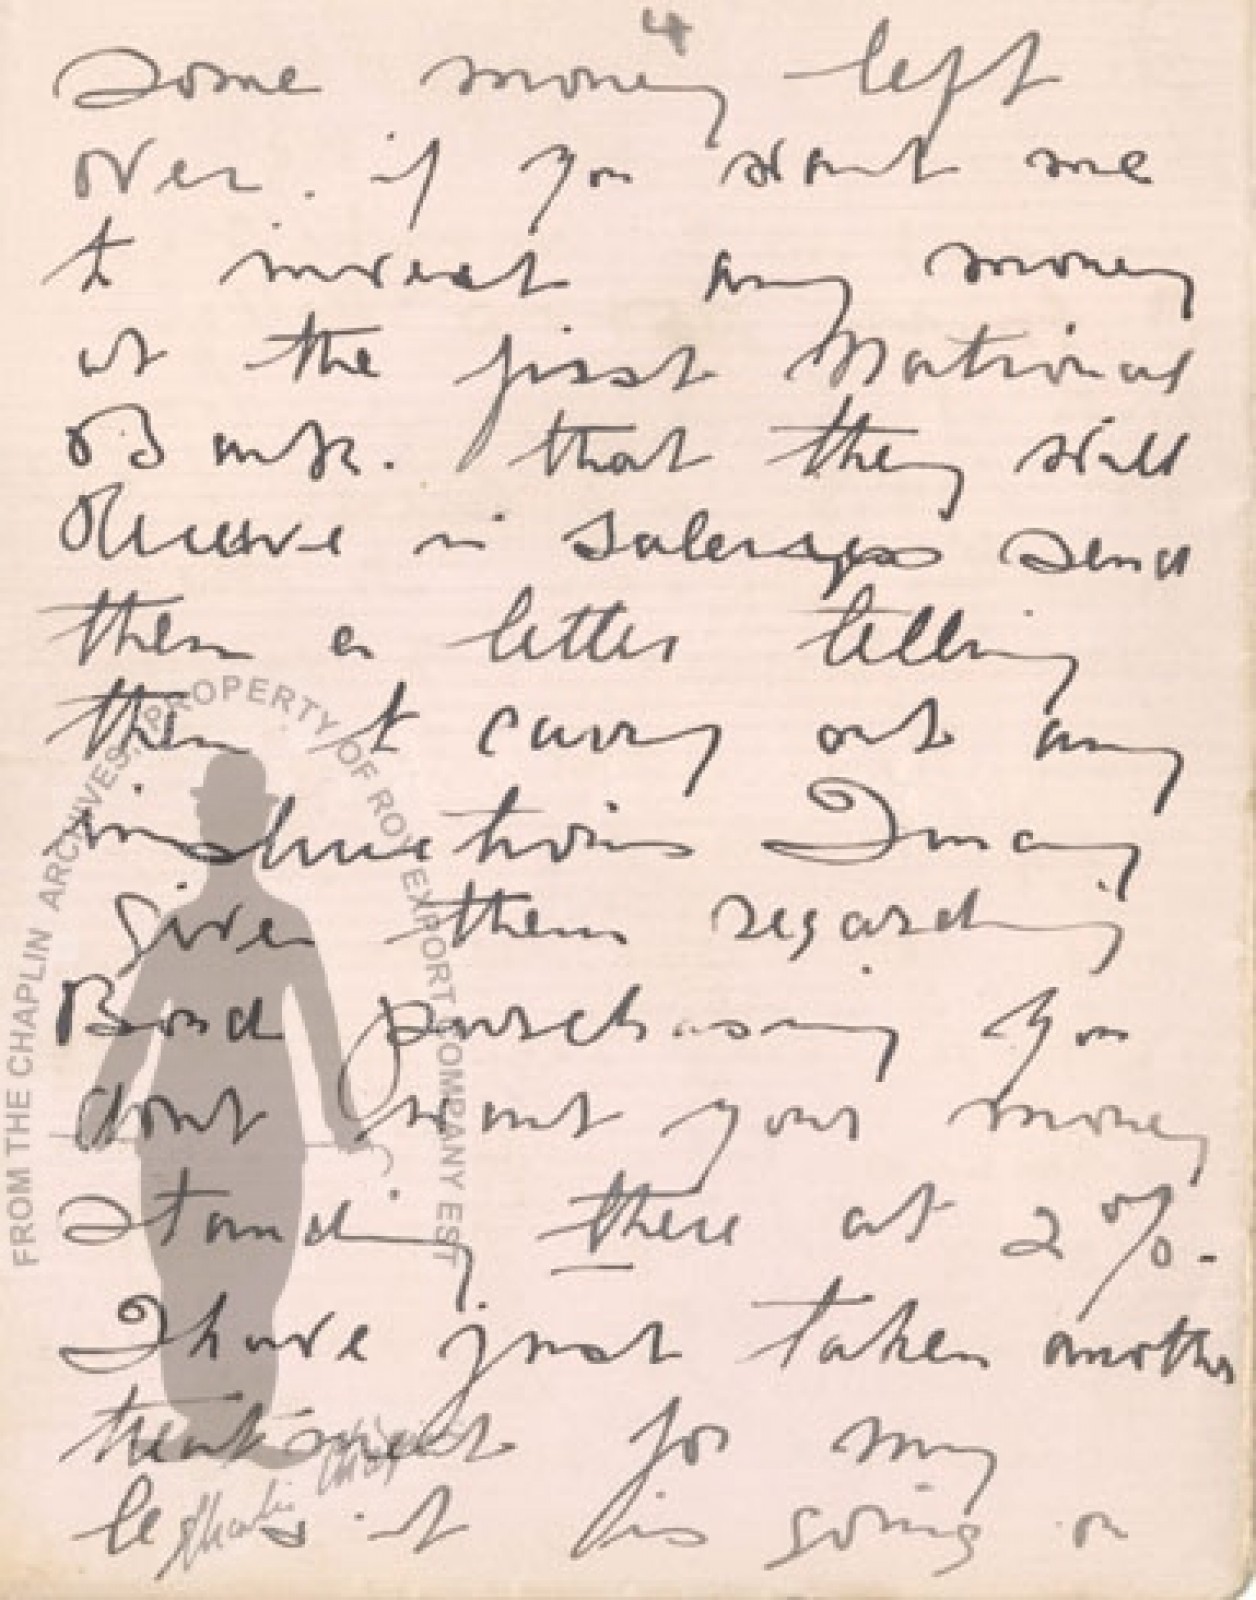 4
some money left
over. if you want me
to invest any money
at the first National
Bank. that they will
receive in salerys send
them a letter telling
them to carry out any
instructions I may
give them regarding
Bond purchasing you
dont want your money
standing there at 2%.
I have just taken another
treatment for my
it is going on
FROM THE CHAPLIN ARCHIVES, PROPERTY OF ROY EXPORT COMPANY EST
Charlie Chaplin